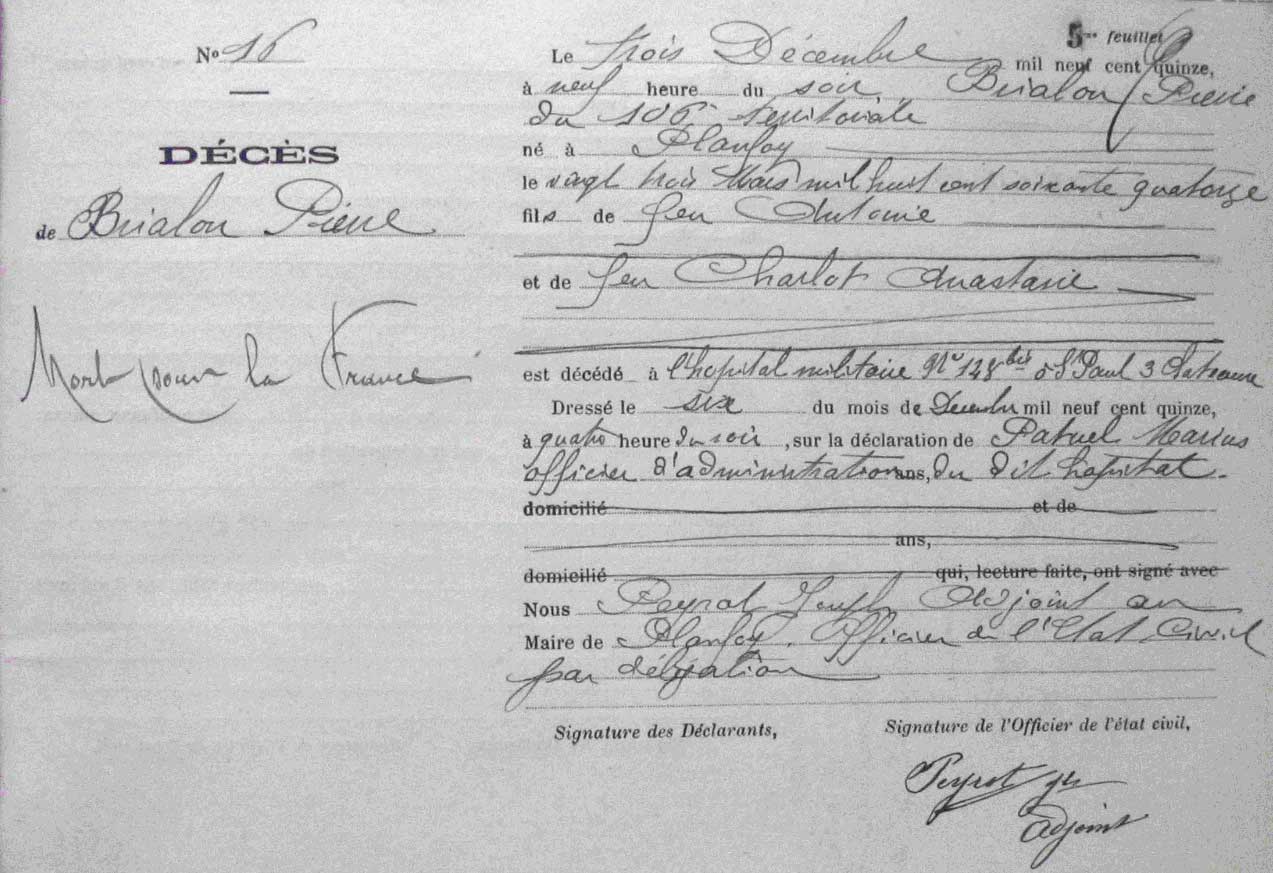 No 16
DÉCÈS
de Brialon Pierre
Mort pour la France
5me feuillet
Le trois Décembre mil neuf cent quinze,
à neuf heure du soir, Brialon Pierre
du 106e territoriale
né à Planfoy
le vingt trois Mars mil huit cent soixante quatorze
fils de feu Antoine
et de feu Charlot Anastasie
est décédé à l'hopital militaire No 128 bis à St Paul 3 Chateaux
Dressé le six du mois de Decembre mil neuf cent quinze,
à quatre heure du soir, sur la déclaration de Marius
officier d'administration ans, du dit hopital.
domicilié et de
ans,
domicilié qui, lecture faite, ont signé avec
Nous Peyrot Joseph Adjoint au
Maire de Planfoy. Officier de l'Etat Civil
par délégation
Signature des Déclarants,
Signature de l'Officier de l'état civil,
Peyrot
adjoint